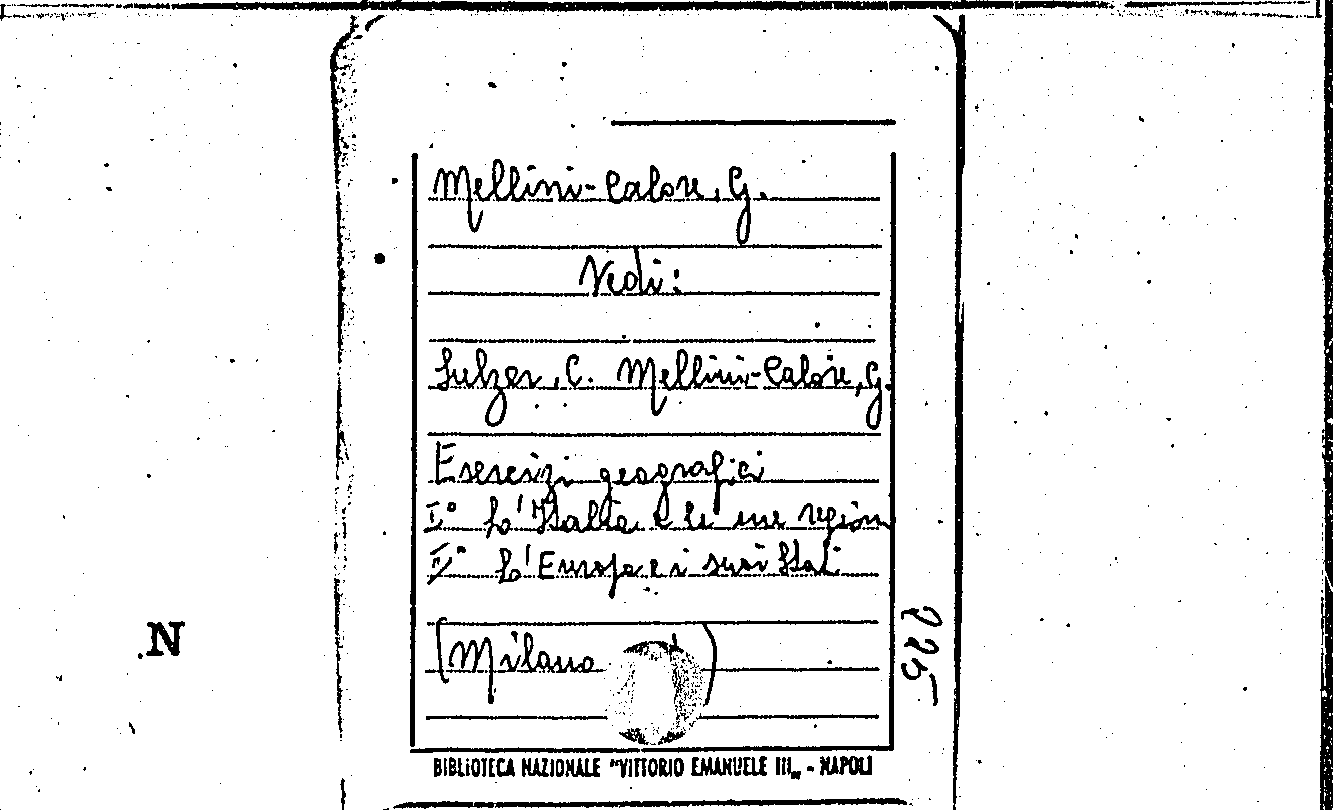 Mellini-Calore, G.
Vedi:
Sulzer, C. Mellini-Calore, G.
Esercizi geografici
I° L'Italia e le sue regioni
II° L'Europa e i suoi Stati
(Milano )
225
N
BIBLIOTECA NAZIONALE "VITTORIO EMANUELE III„ - NAPOLI